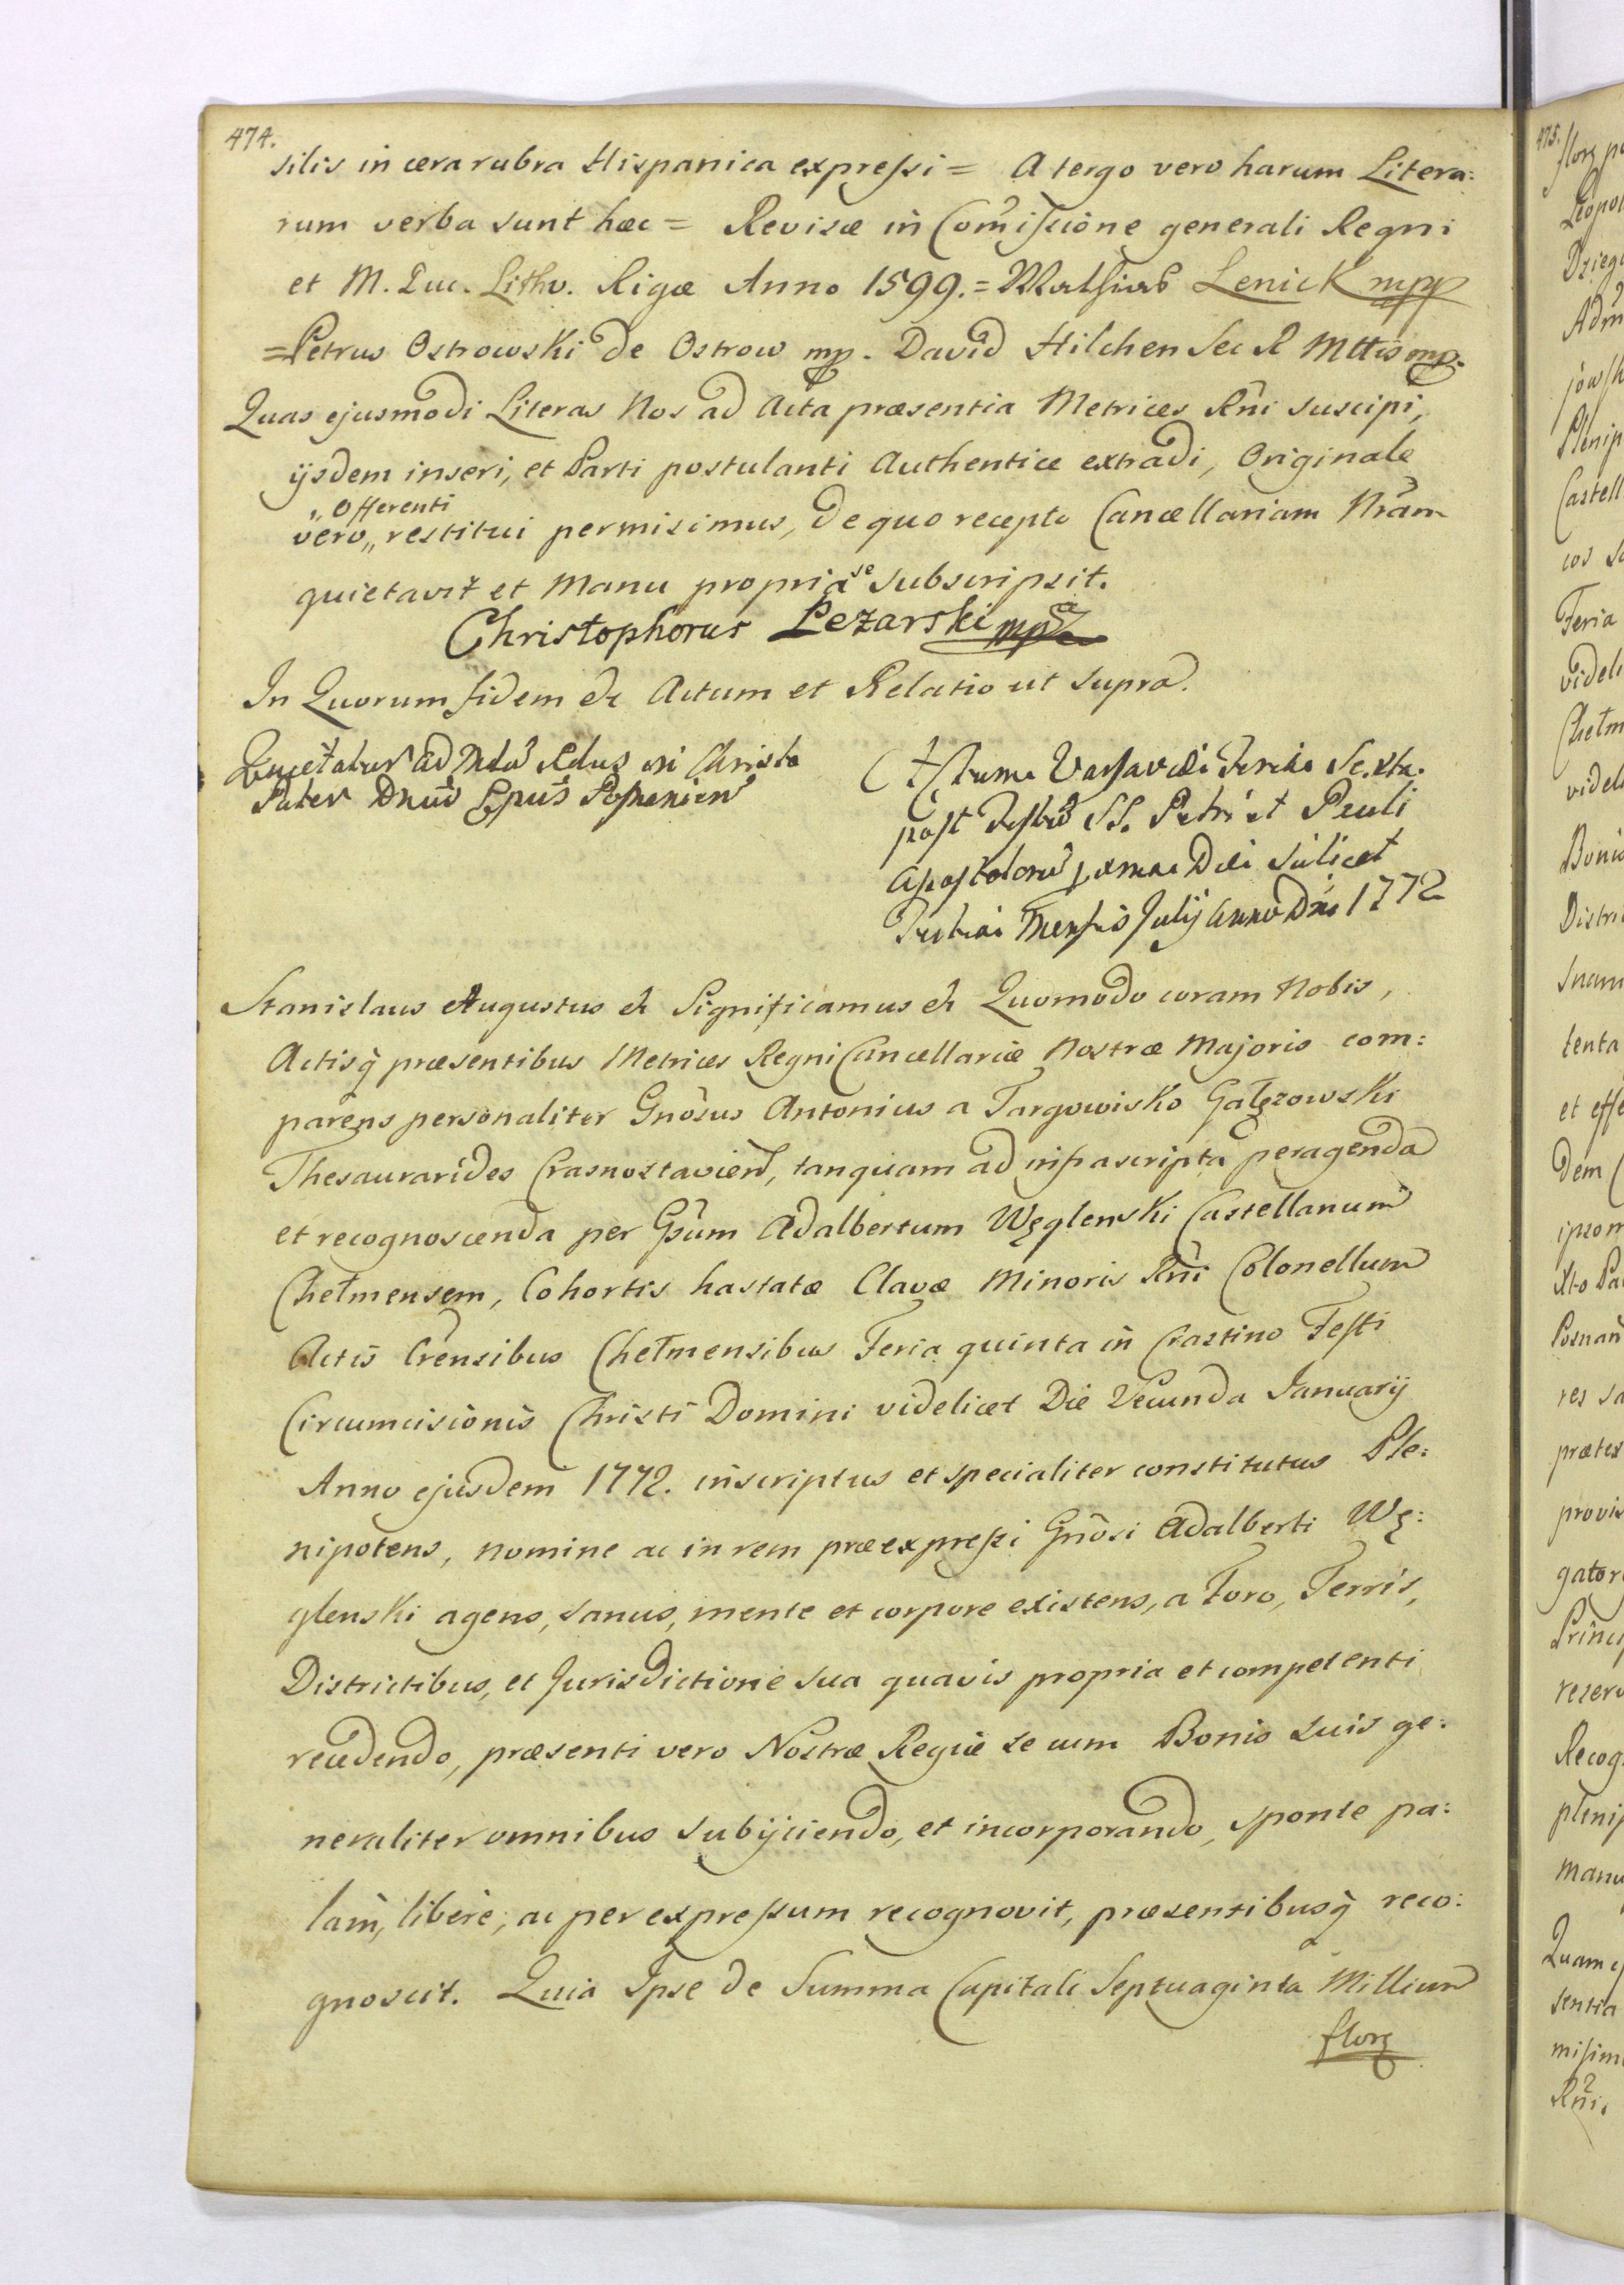 474.
silis in cera rubra Hispanica expressi = A tergo vero harum Litera:
rum verba sunt hæc = Revisæ in Com̃issione generali Regni
et M. Duc. Lithv. Rigæ Anno 1599. = Mathias Lenick mpp
= Petrus Ostrowski de Ostrow mp. David Hilchen Sec R Mttis mp.
Quas ejusmodi Literas Nos ad Acta præsentia Metrices Rñi suscipi,
ijsdem inseri, et Parti postulanti Authentice extradi, Originale
„ Offerenti
vero „ restitui permisimus, de quo recepto Cancellariam Nrãm
quietavit et Manu propria se subscripsit.
Christophorus Lezarski mp
In Quorum fidem &c Actum et Relatio ut supra.
Quietatur ad Rndus in Christo
Pater Dnus Epũs Posnanien
Actum Varsaviæ Feria Sexta
post Festũ SS. Petri et Pauli
Apostolorũ Die scilicet
Tertia Mensis Julij Anno Dni 1772
Stanislaus Augustus &c Significamus &c Quomodo coram Nobis,
Actisq̃ præsentibus Metrices Regni Cancellariæ Nostræ Majoris com:
parens personaliter Gnõsus Antonius a Targowisko Gałęzowski
Thesaurarides Crasnostavien, tanquam ad infrascripta peragenda
et recognoscenda per Gsum Adalbertum Węglenski Castellanum
Chełmensem, Cohortis hastatæ Clavæ Minoris Rñi Colonellum
Actis Crensibus Chełmensibus Feria quinta in Crastino Festi
Circumcisionis Christi Domini videlicet Die Secunda Januarij
Anno ejusdem 1772. inscriptus et specialiter constitutus Ple:
nipotens, nomine ac in rem præexpressi Gnõsi Adalberti Wę:
glenski agens, sanus, mente et corpore existens, a Foro, Terris,
Districtibus, et Jurisdictione sua quavis propria et competenti
recedendo, præsenti vero Nostræ Regiæ se cum Bonis suis ge:
neraliter omnibus subijciendo, et incorporando, sponte pa:
lam, libere, ac per expressum recognovit, præsentibusq̃ reco:
gnoscit. Quia Ipse de Summa Capitali Septuaginta Millium
flor
475.
Leopol
Adm
Plenip
Castell
Feria
videli
Chełm
videl
Bonis
Distri
tenta
et effe
dem
Xto Pa
Posnan
res sa
prætex
provis
gator
Princi
reserv
Recog
plenip
manu
Quam
sentia
misim
Rñi.